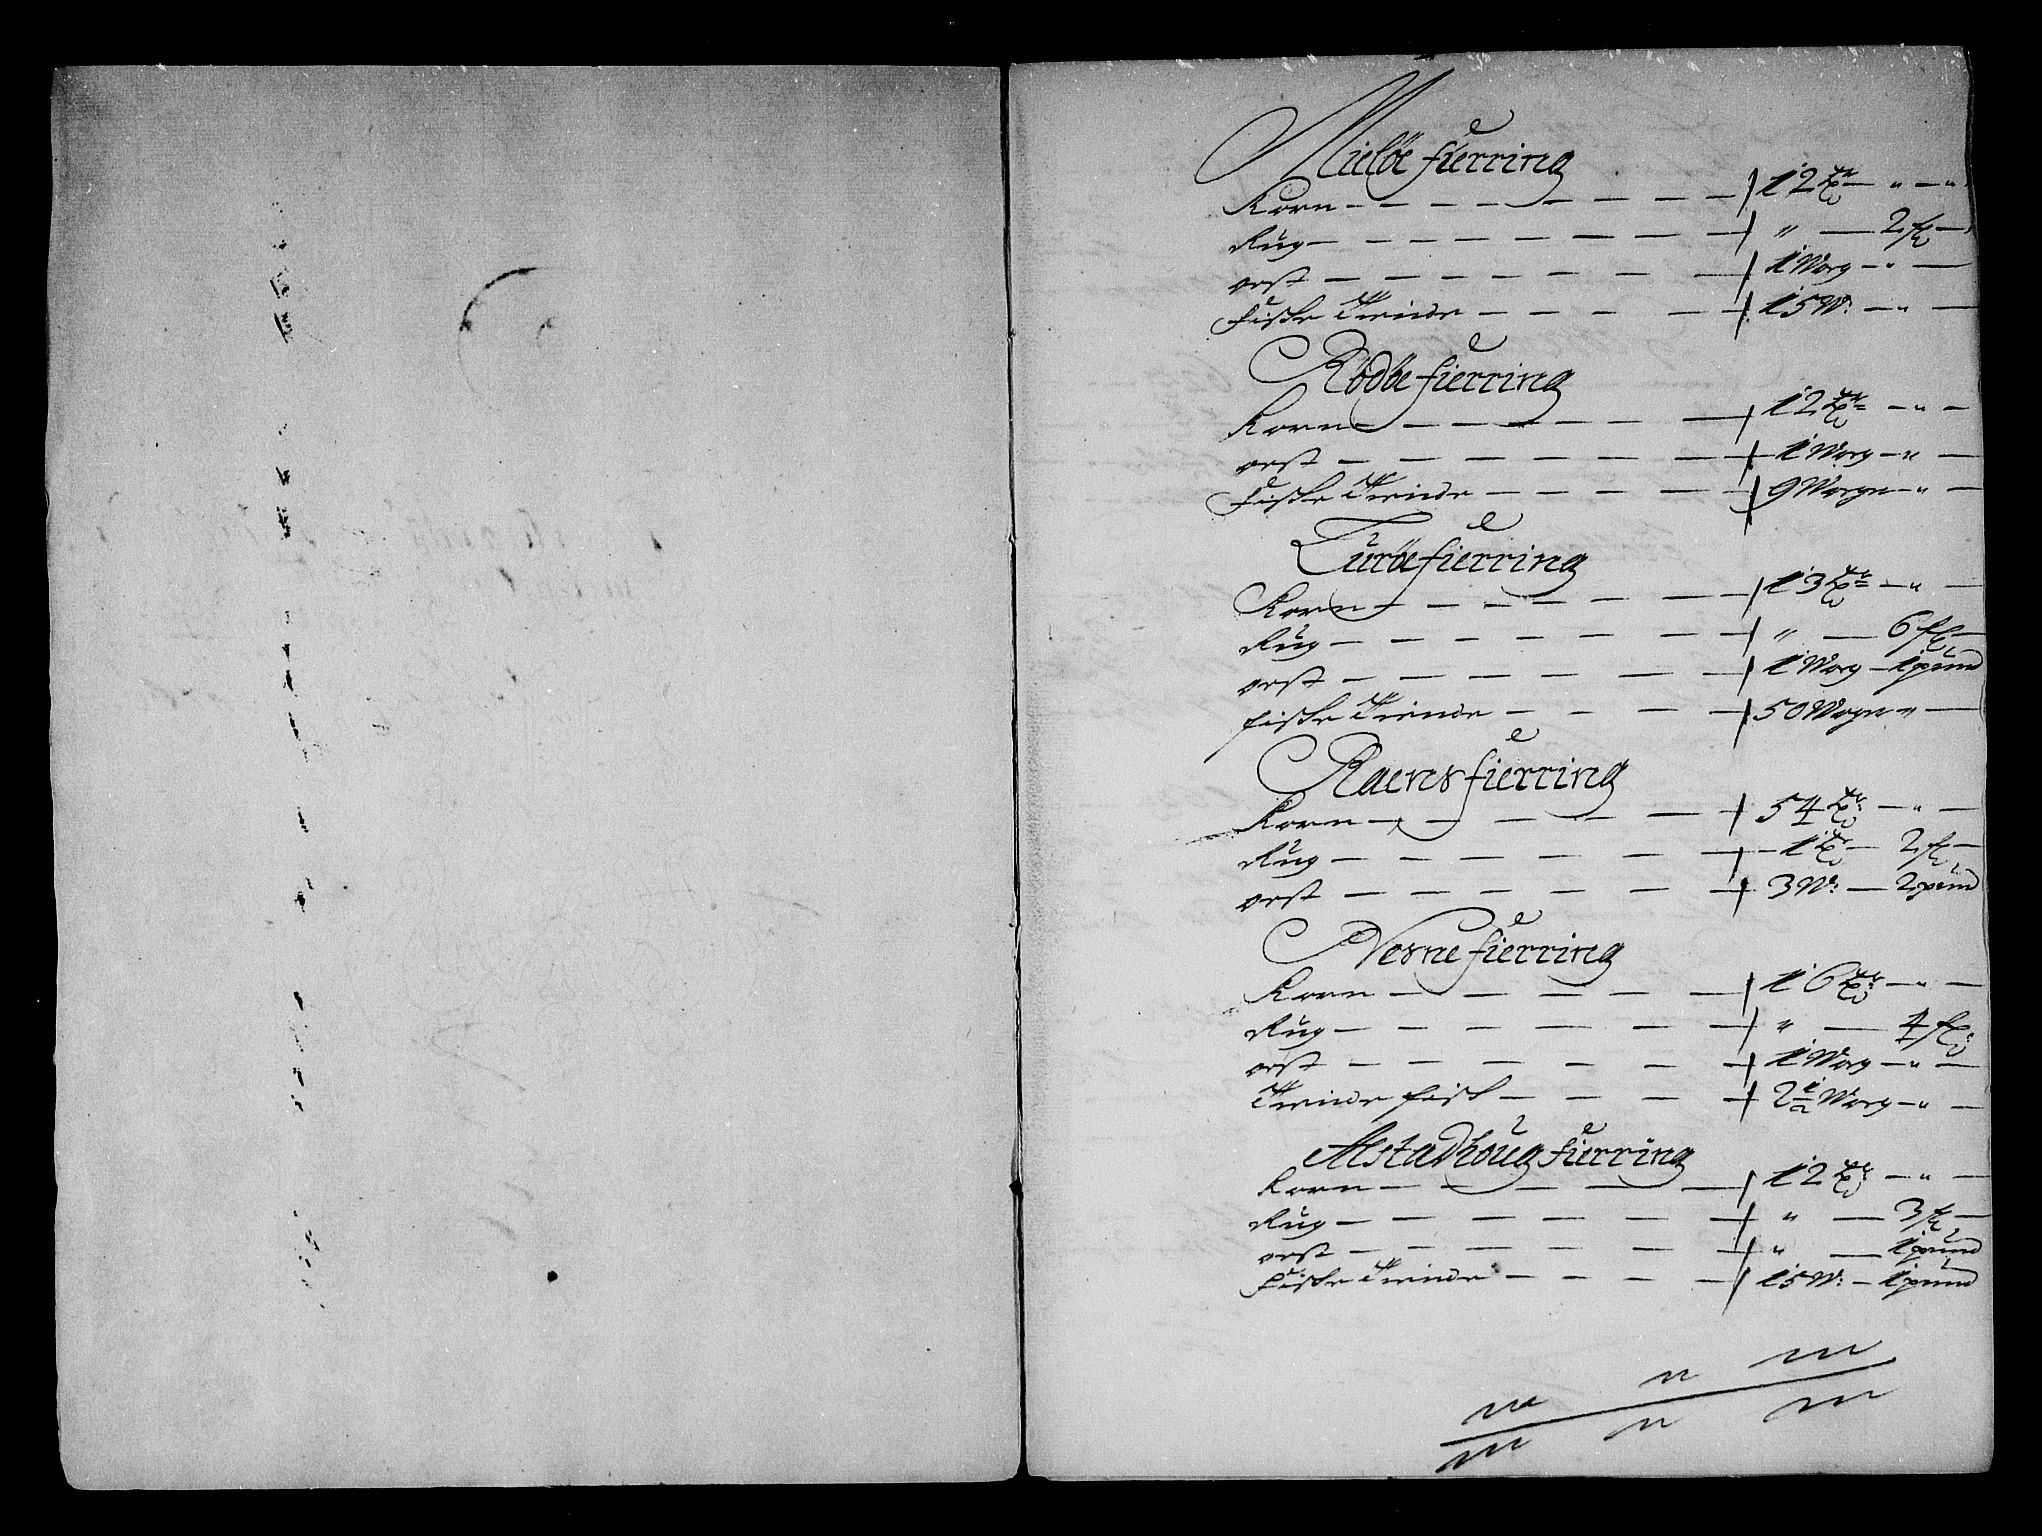 Meløe fierring
Korn — 12 tr — " — "
Rug — " — 2 sk
ost — 1 Vorg — "
Fiske Tiende — 15 W: — "
Rødøe fierring
Korn — 12 tr — "
ost — 1 Vorg — "
Fiske Tiende — 9 Worger — "
Lurøe fierring
Korn — 13 tr — "
Rug — " — 6 sk
ost — 1 Vorg — 1 pund
fiske Tiende — 50 Woger "
Raens fierring
Korn — 54 tr — "
Rug — 1 tr — 2 sk
ost — 3 W: — 2 pund
Nesne fierring
Korn — 16 tr — "
Rug — " — 4 sk
ost — 1 Vorg — "
Tiende fisk — 2 1/2 Vorg — "
Alstadhoug fierring
Korn — 12 tr — "
Rug — " — 3 sk
ost — " — 1 pund
Fiske Tiende — 15 W: — 1 pund